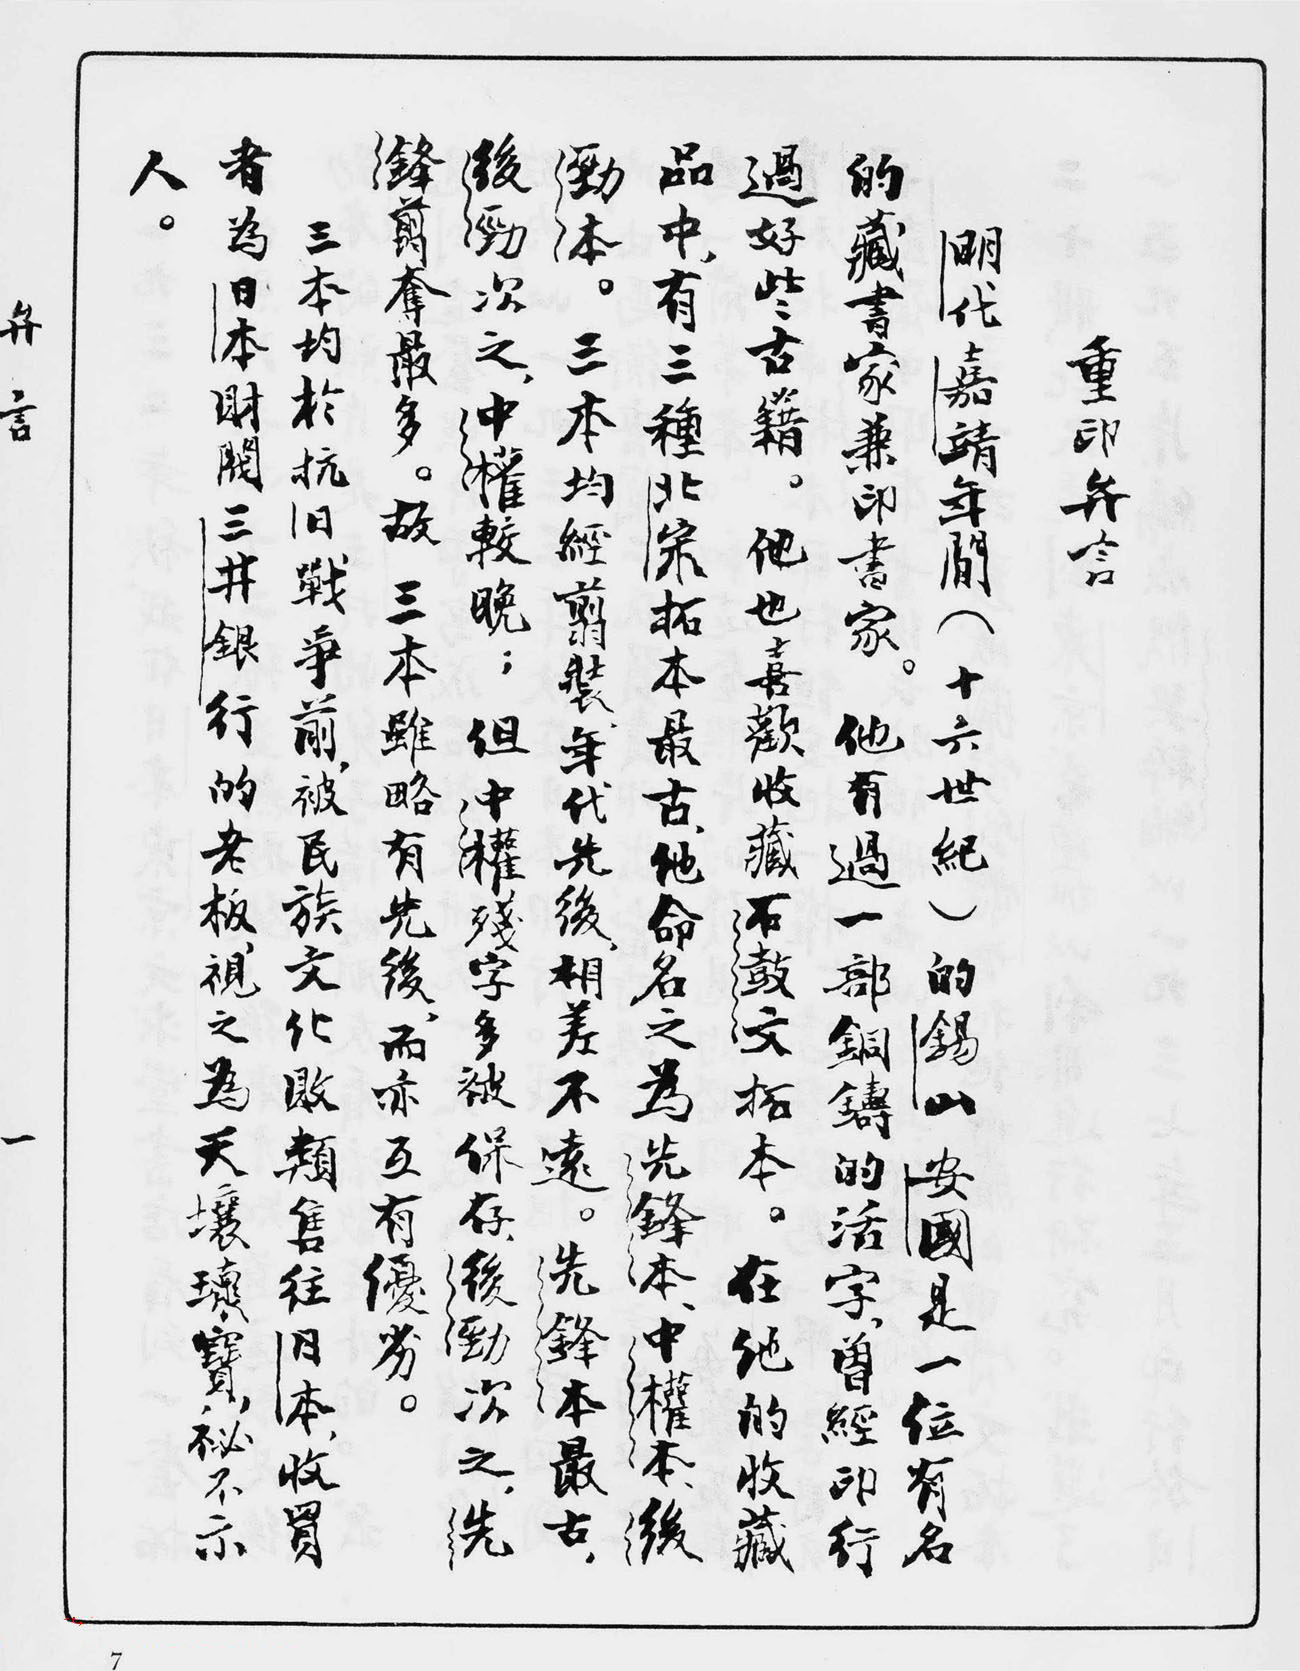 重印弁言
明代嘉靖年間（十六世紀）的錫山安國是一位有名
的藏書家兼印書家。他有過一部銅鑄的活字，曾經印行
過好些古籍。他也喜歡收藏石鼓文拓本。在他的收藏
品中，有三種北宋拓本最古，他命名之為先鋒本、中權本、後
勁本。三本均經剪裝，年代先後，相差不遠。先鋒本最古，
後勁次之，中權較晚；但中權殘字多被保存，後勁次之，先
鋒剪奪最多。故三本雖略有先後，而亦互有優劣。
三本均於抗日戰爭前，被民族文化敗類售往日本，收買
者為日本財閥三井銀行的老板，視之為天壤瓌寶，祕不示
人。
弁言
一
7